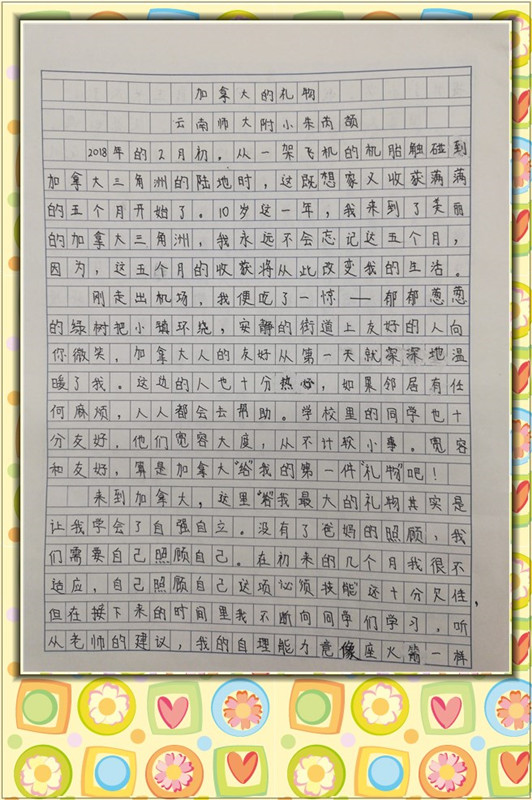 加拿大的礼物
云南师大附小朱芮颉
2018年的2月初,从一架飞机的机胎触碰到
加拿大三角洲的陆地时,这既想家又收获满满
的五个月开始了。10岁这一年,我来到了美丽
的加拿大三角洲,我永远不会忘记这五个月,
因为,这五个月的收获将从此改变我的生活。
刚走出机场,我便吃了一惊——郁郁葱葱
的绿树把小镇环绕,安静的街道上友好的人向
你微笑,加拿大人的友好从第一天就深深地温
暖了我。这边的人也十分热心,如果邻居有任
何麻烦,人人都会去帮助。学校里的同学也十
分友好,他们宽容大度,从不计较小事。宽容
和友好,算是加拿大“给”我的第一件“礼物”吧!
来到加拿大,这里“给”我最大的礼物其实是
让我学会了自强自立。没有了爸妈的照顾,我
们需要自己照顾自己。在初来的几个月我很不
适应,自己照顾自己这项“必须技能”还十分欠佳,
但在接下来的时间里我不断向同学们学习,听
从老师的建议,我的自理能力竟像座火箭一样